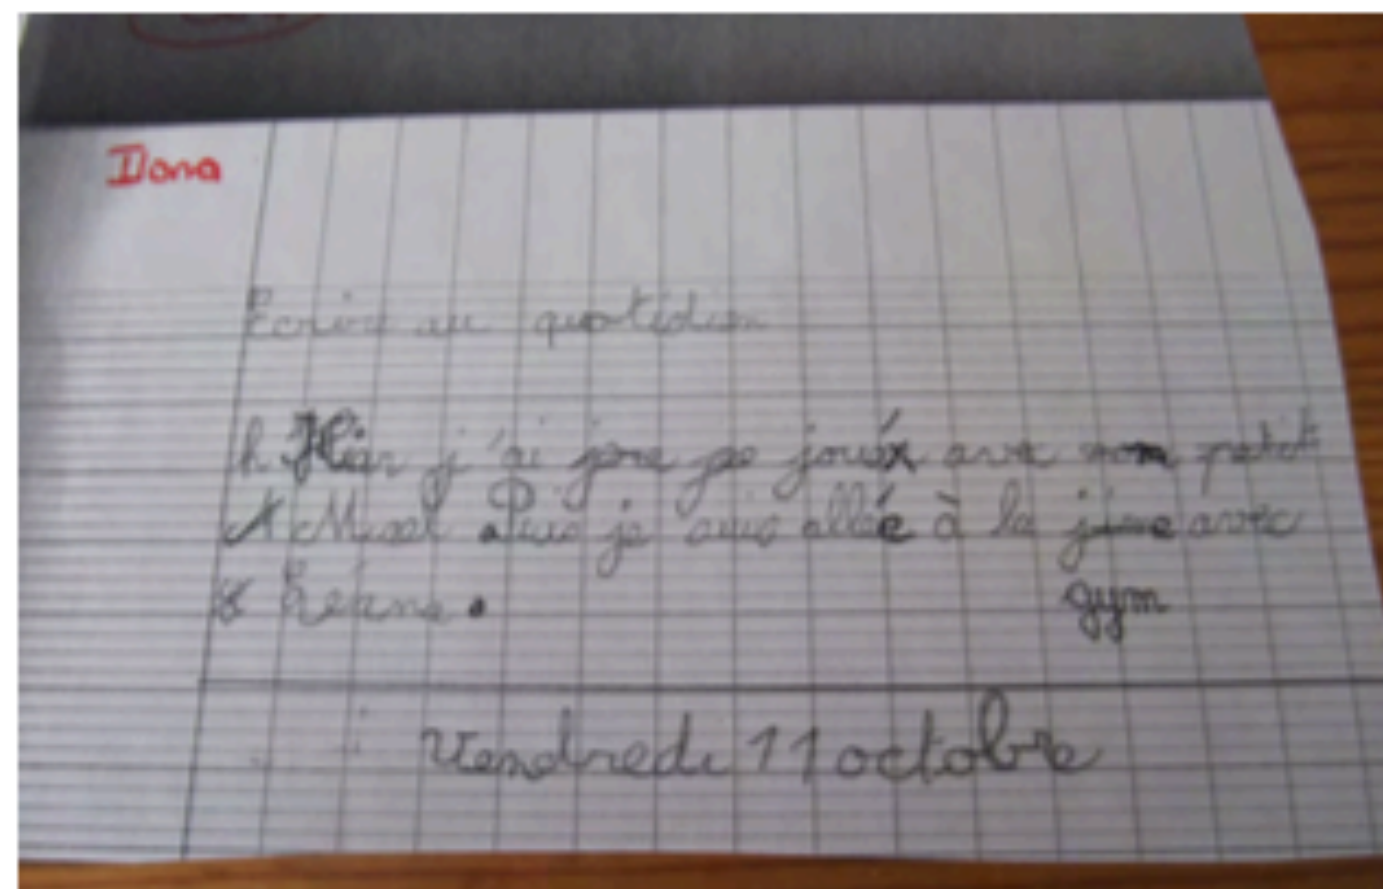 Ilona
Ecrire au quotidien
h Hier j'ai joué avec mon petit
Puis je suis allée à la jime avec
Léane.
gym
Vendredi 11 octobre